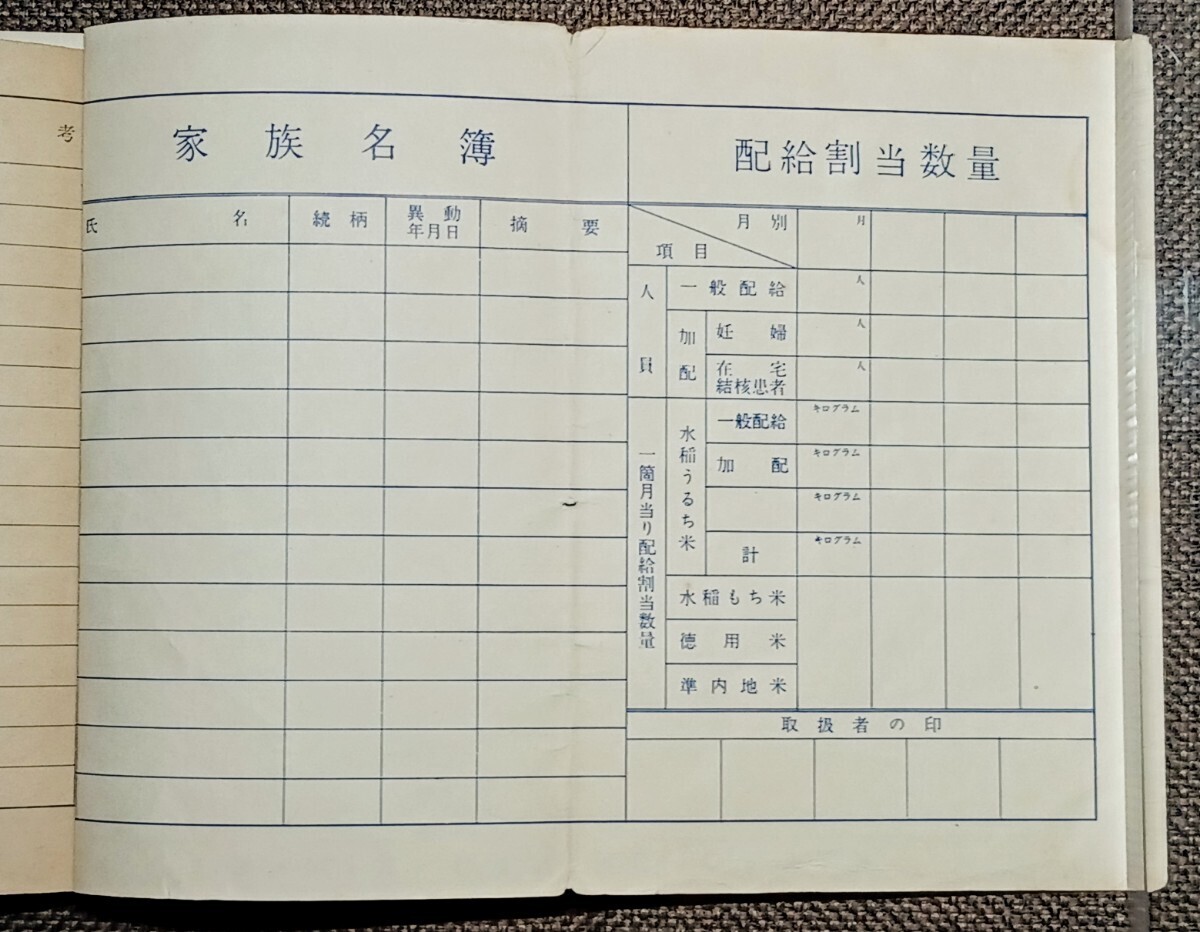 考
家族名簿
氏名
続柄
異動
年月日
摘要
配給割当数量
月別
項目
月
人員
一般配給
人
加配
妊婦
人
在宅
結核患者
人
一箇月当り配給割当数量
水稲うるち米
一般配給
キログラム
加配
キログラム
キログラム
計
キログラム
水稲もち米
徳用米
準内地米
取扱者の印